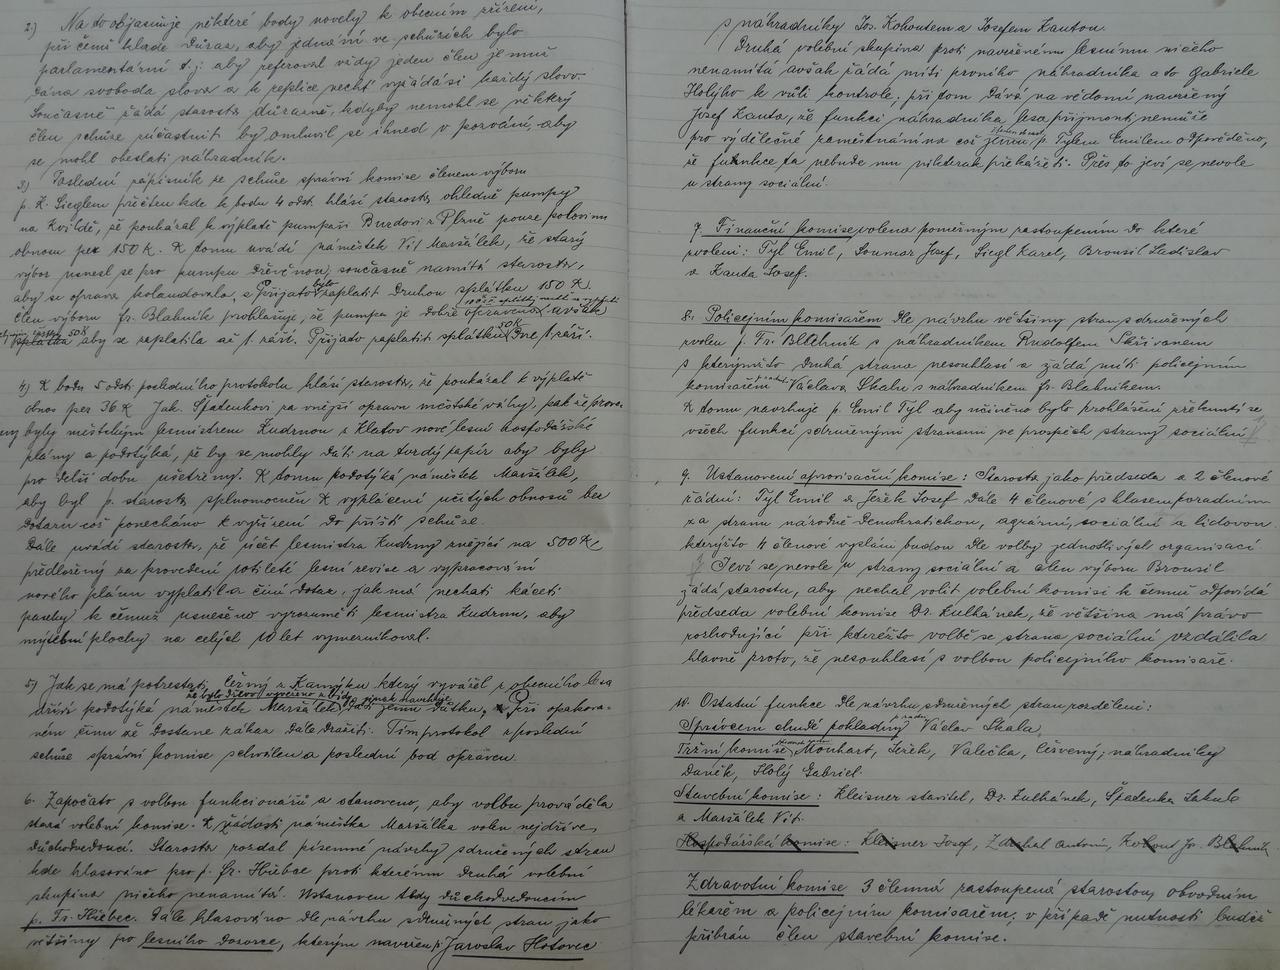 2) Na to objasňuje některé body novely k obecnímu zřízení,
při čemž klade důraz, aby jednání ve schůzích bylo
parlamentární t.j. aby referoval vždy jeden člen je mu
dána svoboda slova a k replice nechť vyžádá si každý slovo.
Současně žádá starosta důrazně, kdyby nemohl se některý
člen schůze súčastnit by omluvil se ihned v pozvání, aby
se mohl obeslati náhradník.
3) Poslední zápisník ze schůze správní komise členem výboru
p. K. Sieglem přečten kde k bodu 4 odst. hlásí starosta ohledně pumpy
na Kvildě, že poukázal k výplatě pumpaři Burdovi z Plzně pouze polovinu
obnosu per 150 K. K tomu uvádí náměstek Vít Maršálek, že starý
výbor usnesl se pro pumpu dřevěnou, současně namítá starosta,
aby se oprava kolaudovala, a přijato bylo zaplatit druhou splátku 150 K.
člen výboru Fr. Blahník prohlašuje, že pumpa je dobře opravena avšak
aby se zaplatila až 1. září. Přijato zaplatiti splátku 50K dne 1. září.
4) K bodu 5 odst. posledního protokolu hlásí starosta, že poukázal k výplatě
obnos per 36 K Jak. Špatenkovi za vnější opravu městské váhy, pak že prove-
eny byly městským lesmistrem Kudrnou z Klatov nové lesní hospodářské
plány a podotýká, že by se mohly dáti na tvrdý papír aby byly
pro delší dobu ušetřeny. K tomu podotýká náměstek Maršálek,
aby byl p. starosta splnomocněn k vyplácení určitých obnosů bez
dotazu což ponecháno k vyřízení do příští schůze.
Dále uvádí starosta, že účet lesmistra Kudrny znějící na 500 K,
předložený za provedení 10tileté lesní revise a vypracování
nového plánu vyplatil a činí dotaz, jak má nechati káceti
paseky k čemuž usneseno vyrozuměti lesmistra Kudrnu, aby
mýtební plochy na celých 10 let vyměrnikoval.
5) Jak se má potrestati Černý z Kamýku který vyvážel z obecního lesa
dříví podotýká náměstek Maršálek, dáti jemu důtku, Při opakova-
ném činu že dostane zákaz dále dražiti. Tím protokol z poslední
schůze správní komise schválen a poslední bod opraven.
6. Započato s volbou funkcionářů a stanoveno, aby volbu prováděla
stará volební komise. K žádosti náměstka Maršálka volen nejdříve
důchodvedoucí. Starosta rozdal písemné návrhy sdružených stran
kde hlasováno pro p. Fr. Hűebce proti kterému druhá volební
skupina ničeho nenamítá. Ustanoven tedy důchodvedoucím
p. Fr. Hűebec. Dále hlasováno dle návrhu sdružených stran jako
většiny pro lesního dozorce, kterým navržen p. Jaroslav Hotovec
s náhradníky Jos. Kohoutem a Josefem Kantou.
Druhá volební skupina proti navrženému lesnímu ničeho
nenamítá avšak žádá míti prvního náhradníka a to Gabriele
Holýho k vůli kontrole. při tom dává na vědomí navržený
Josef Kanta, že funkci náhradníka lesa přijmouti nemůže
pro výdělečné zaměstnání na což p. Tylem Emilem odpověděno,
že funkce ta nebude mu nikterak překážeti. Přes to jeví se nevole
u strany sociální.
7. Finanční komise volena poměrným zastoupením do které
zvoleni: Tyl Emil, Soumar Josef, Siegl Karel, Brousil Ladislav
a Kanta Josef.
8. Policejním komisařem dle návrhu většiny stran sdružených
zvolen p. Fr. Blahník s náhradníkem Rudolfem Skřivanem
s kterýmžto druhá strana nesouhlasí a žádá míti policejním
komisařem Václava Skalu s náhradníkem Fr. Blahníkem.
K tomu navrhuje p. Emil Tyl aby učiněno bylo prohlášení zřeknutí se
všech funkcí sdruženými stranami ve prospěch strany sociální
9. Ustanovení aprovisační komise: Starosta jako předseda a 2 členové
řádní: Tyl Emil a Jerík Josef Dále 4 členové s hlasem poradním
za stranu národně demokratickou, agrární, sociální a lidovou
kterýžto 4 členové vysláni budou dle volby jednotlivých organisací.
Jeví se nevole u strany sociální a člen výboru Brousil
žádá starostu, aby nechal volit volební komisi k čemuž odpovídá
předseda volební komise Dr. Lukánek, že většina má právo
rozhodující při kteréžto volbě se strana sociální vzdálila
hlavně proto, že nesouhlasí s volbou policejního komisaře.
10. Ostatní funkce dle návrhu sdružených stran rozděleni:
Správcem chudé pokladny Václav Skala,
Tržní komise Monhart, Jeřek, Valečka, Červený; náhradníky
Daněk, Holý Gabriel.
Stavební komise: Kleisner stavitel, Dr. Lukánek, Špatenka Jakub
a Maršálek Vít.
Hospodářská komise: Kleisner Josef, Zdrahal Antonín, Kohout Jos. Blahník
Zdravotní komise 3 členná zastoupená starostou, obvodním
lékařem a policejním komisařem, v případě nutnosti budiž
přibrán člen stavební komise.